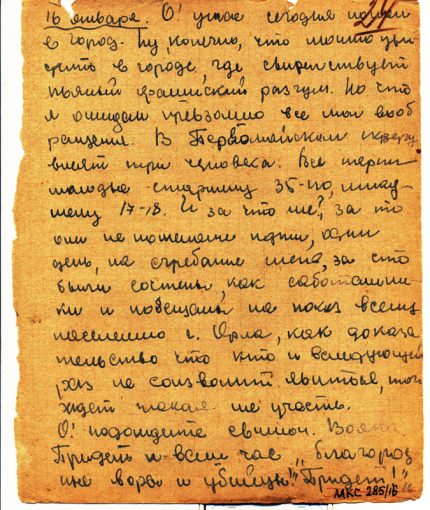 16 января. О! ужас сегодня пошел
в город. Ну конечно, что можно уви
деть в городе, где свирепствует
пьяный фашистский разгул. Но что
я превзошло все мои вооб
ражения. В Первомайском сквере
висят три человека. Все парни
молодые старшему 35-го,
шему 17-18. И за что же? За то
они не пожелали идти, один
день, на сгребание снега, за что
были сочтены, как саботажни
ки и повешаны на показ всему
населению г. Орла, как доказа
тельство что кто и вследующий
раз не соизволит явиться, того
ждет такая же участь.
О! подождите сволоч.
Придет и ваш час, „благород
ные воры и убийцы!" Придет!
МКС 285/16